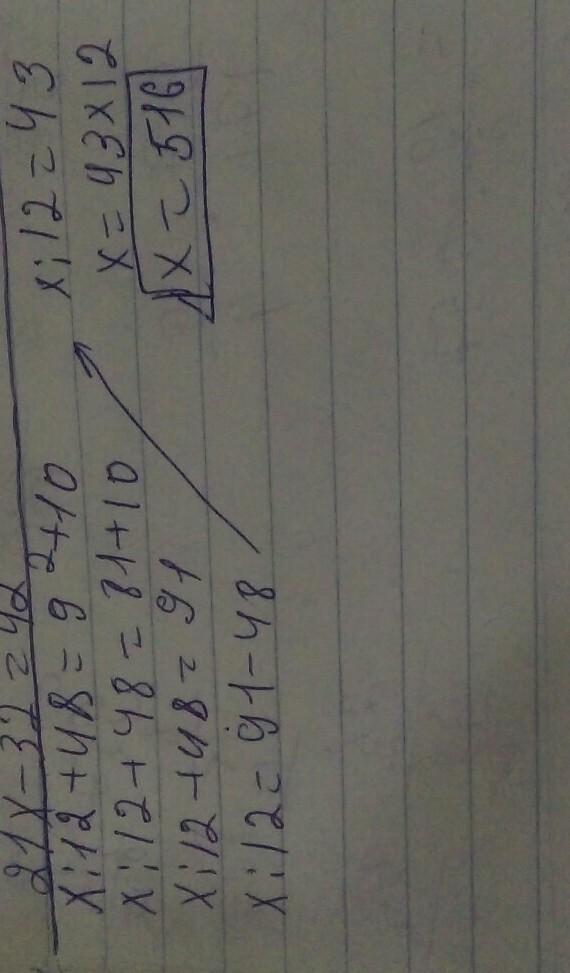 21x-32=42
x:12+48=9²+10
x:12+48=81+10
x:12+48=91
x:12=91-48
x:12=43
x=43x12
x=516